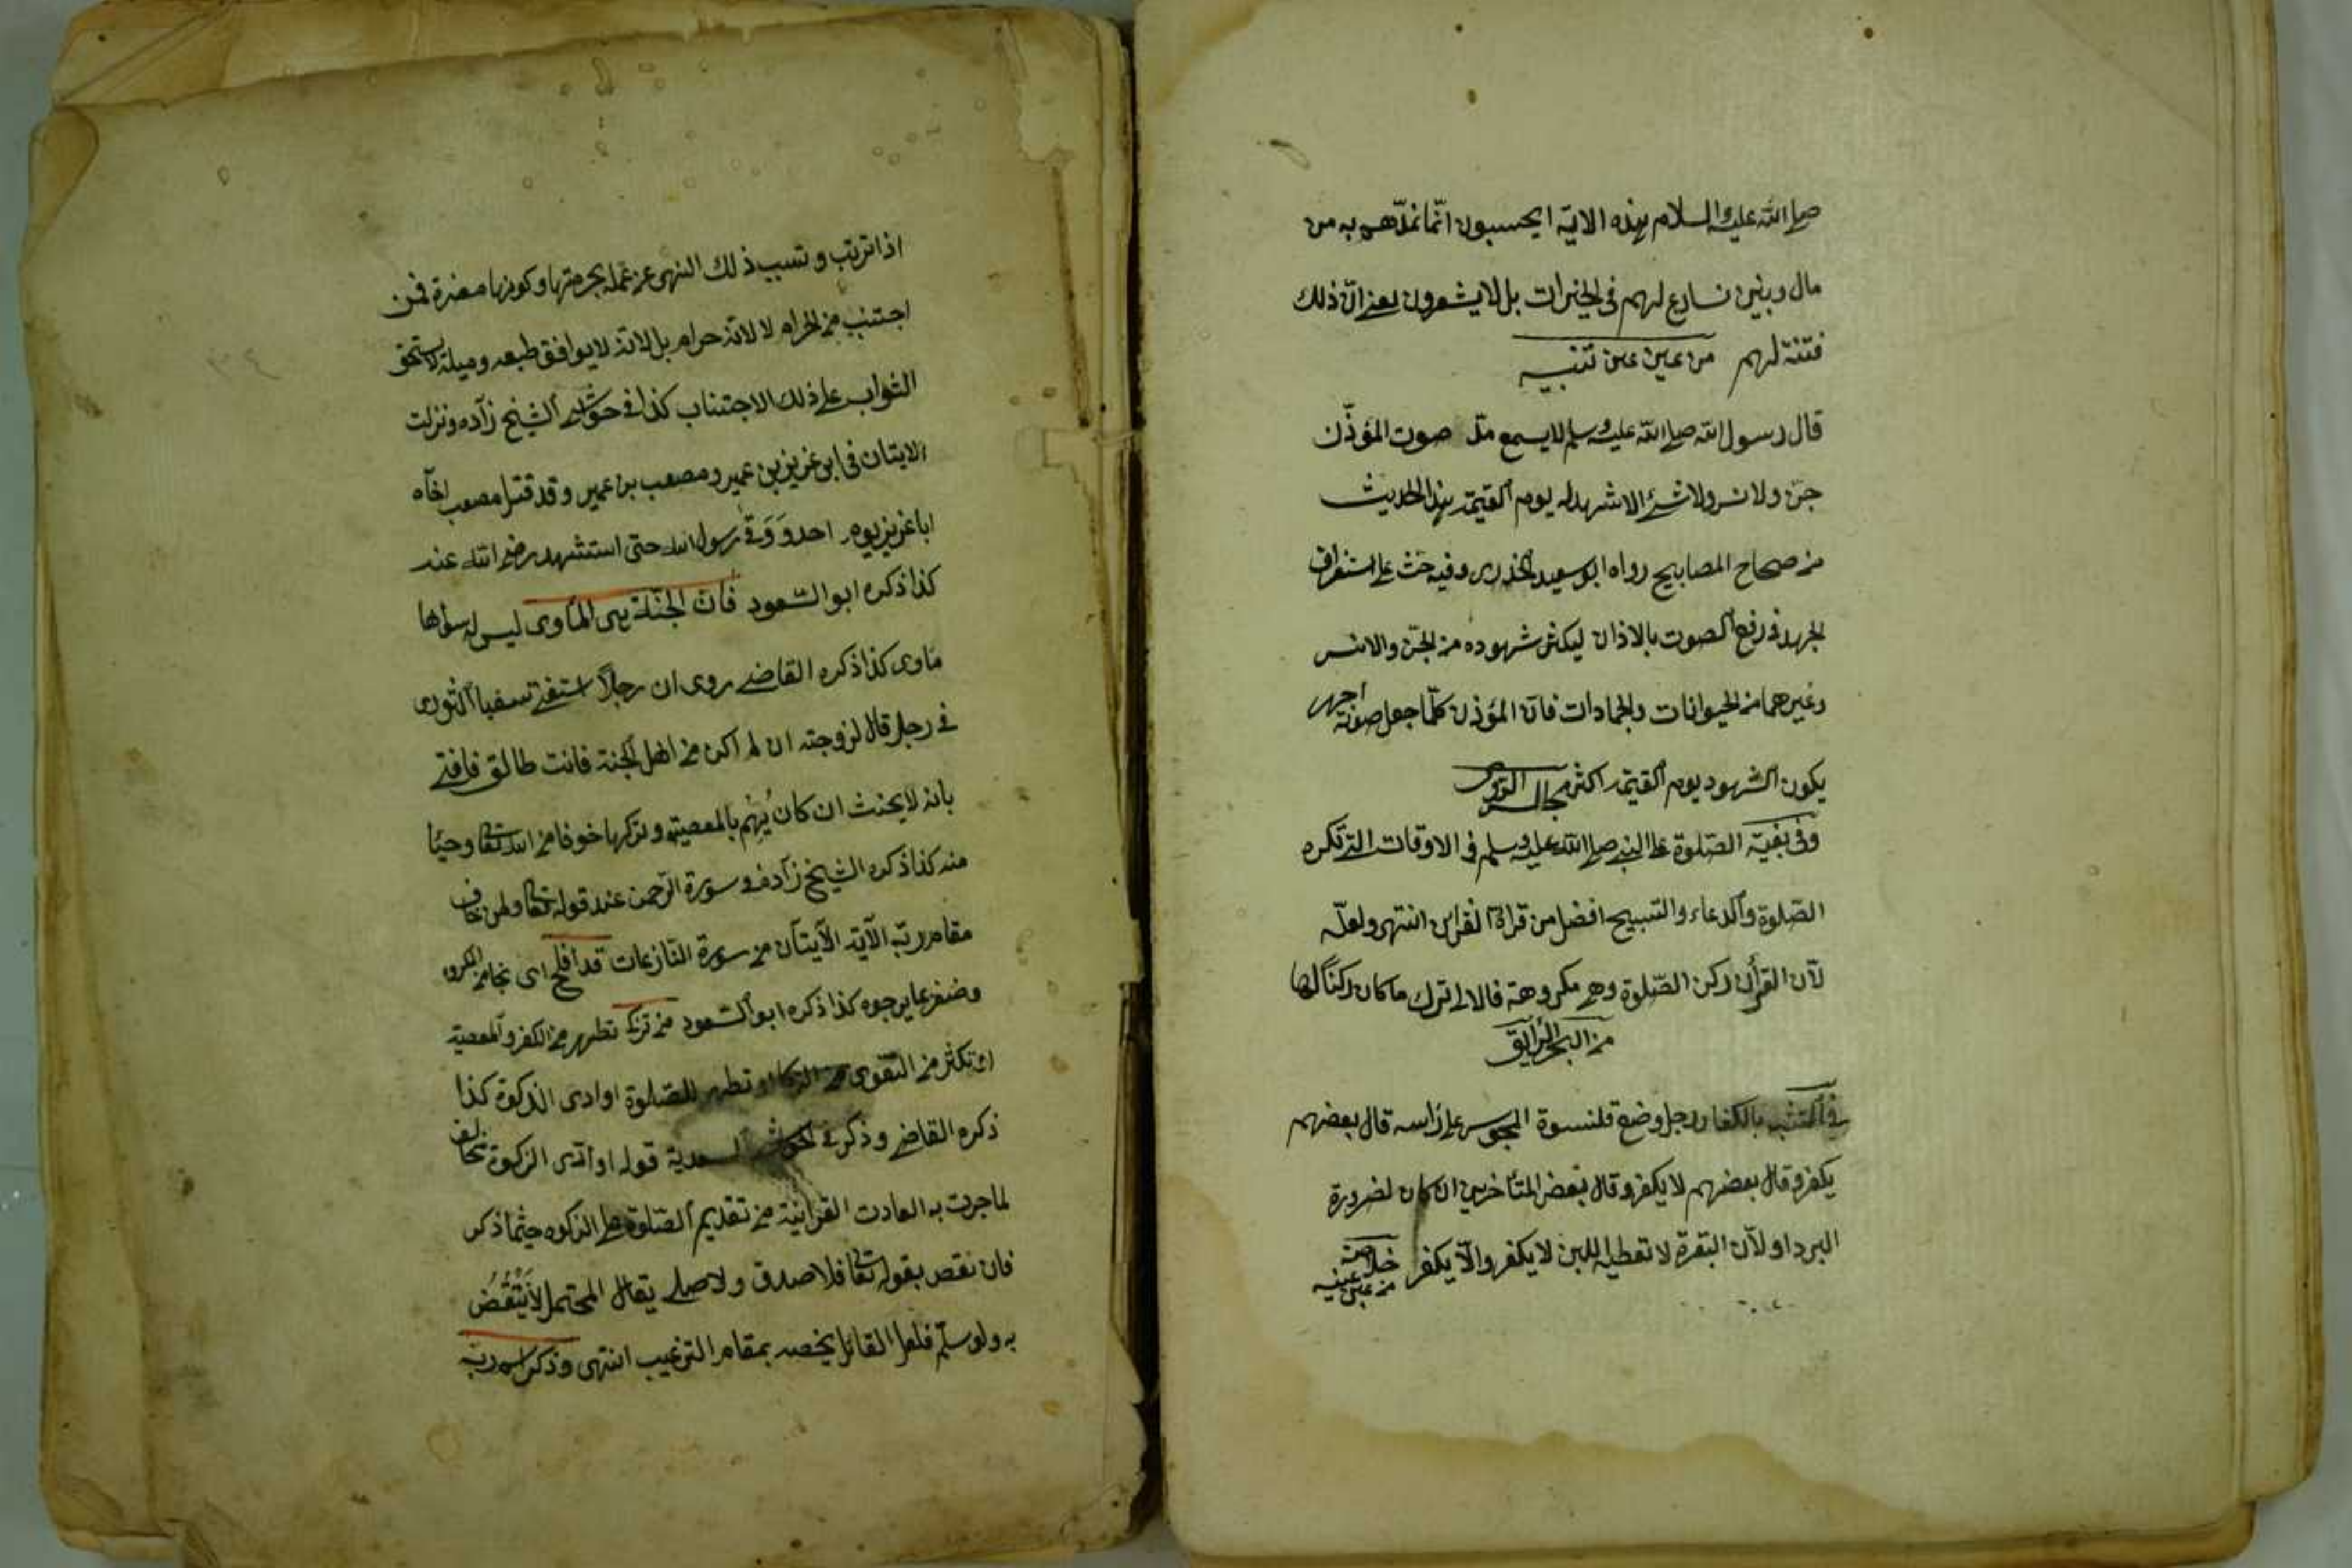 صلى الله عليه والسلام بهذه الاية ايحسبون انّما نمدّهم به من
مال وبنين نسارع لهم فى الخيرات بل لا يشعرون يعنى انّ ذلك
فتنة لهم من عين عين تنبيه
قال رسول الله صلى الله عليه وسلم لا يسمع مدّ صوت المؤذّن
جنّ ولا نس ولا شئ الا شهد له يوم القيمة هذا الحديث
من صحاح المصابيح رواه ابو سعيد الخدرى وفيه حثّ على استغراق
الجهد فى رفع الصوت بالاذان ليكثر شهوده من الجنّ والانس
وغيرهما من الحيوانات والجمادات فانّ المؤذن كلّما جعل صوته اجهر
يكون الشهود يوم القيمة اكثر مجالس الرومى
وفى بغية الصّلوة على النبى صلى الله عليه وسلم فى الاوقات التى تكره
الصّلوة والدعاء والتسبيح افضل من قراءة القرأن انتهى ولعلّه
لانّ القرأن ركن الصّلوة وهى مكروهة فالاولى ترك ما كان ركنًا لها
من البحر الرايق
فى التشبه بالكفار رجل وضع قلنسوة المجوس على رأسه قال بعضهم
يكفر وقال بعضهم لا يكفر وقال بعض المتأخرين ان كان لضرورة
البرد او لانّ البقرة لا تعطيه اللبن لا يكفر والّا يكفر خلاصة
من عين عينه
اذا ترتب وتسبب ذلك النهى عن عمله بحرمتها وكونها مضرة فمن
اجتنب من الحرام لا لانه حرام بل لانه لا يوافق طبعه وميله لا يستحق
الثواب على ذلك الاجتناب كذا فى حواشى الشيخ زاده ونزلت
الايتان فى ابى عزيز بن عمير ومصعب بن عمير وقد قتل مصعب اخاه
ابا عزيز يوم احد ووقى رسول الله حتى استشهد رضى الله عنه
كذا ذكره ابو السّعود فان الجنّة هى المأوى ليس له سواها
مأوى كذا ذكره القاضى روى ان رجلًا استفتى سفيا الثورى
فى رجل قال لزوجته ان لم اكن من اهل الجنة فانت طالق فافتى
بانه لا يحنث ان كان يُهِمّ بالمعصية وتركها خوفا من الله تعالى وحيًا
منه كذا ذكره الشيخ زاده فى سورة الرّحمن عند قوله تعالى ولمن خاف
مقام ربّه الآية الآيتان من سورة النّازعات قد افلح اى نجا من المكروه
وضفر بما يرجوه كذا ذكره ابو السّعود من تزكّى تطهر من الكفر والمعصية
او تكثر من التقوى من الزكا او تطهر للصّلوة او ادى الزكوة كذا
ذكره القاضى وذكر فى الحواشى السعدية قوله او ادّى الزكوة يخالف
لما جرت به العادت القرانية من تقديم الصّلوة على الزكوه حيثما ذكر
فان نقض بقوله تعالى فلا صدق ولا صلى يقال المحتمل لا يَنْتَقُضُ
به ولو سلّم فلعل القائل يخصه بمقام الترغيب انتهى وذكر اسم ربّه